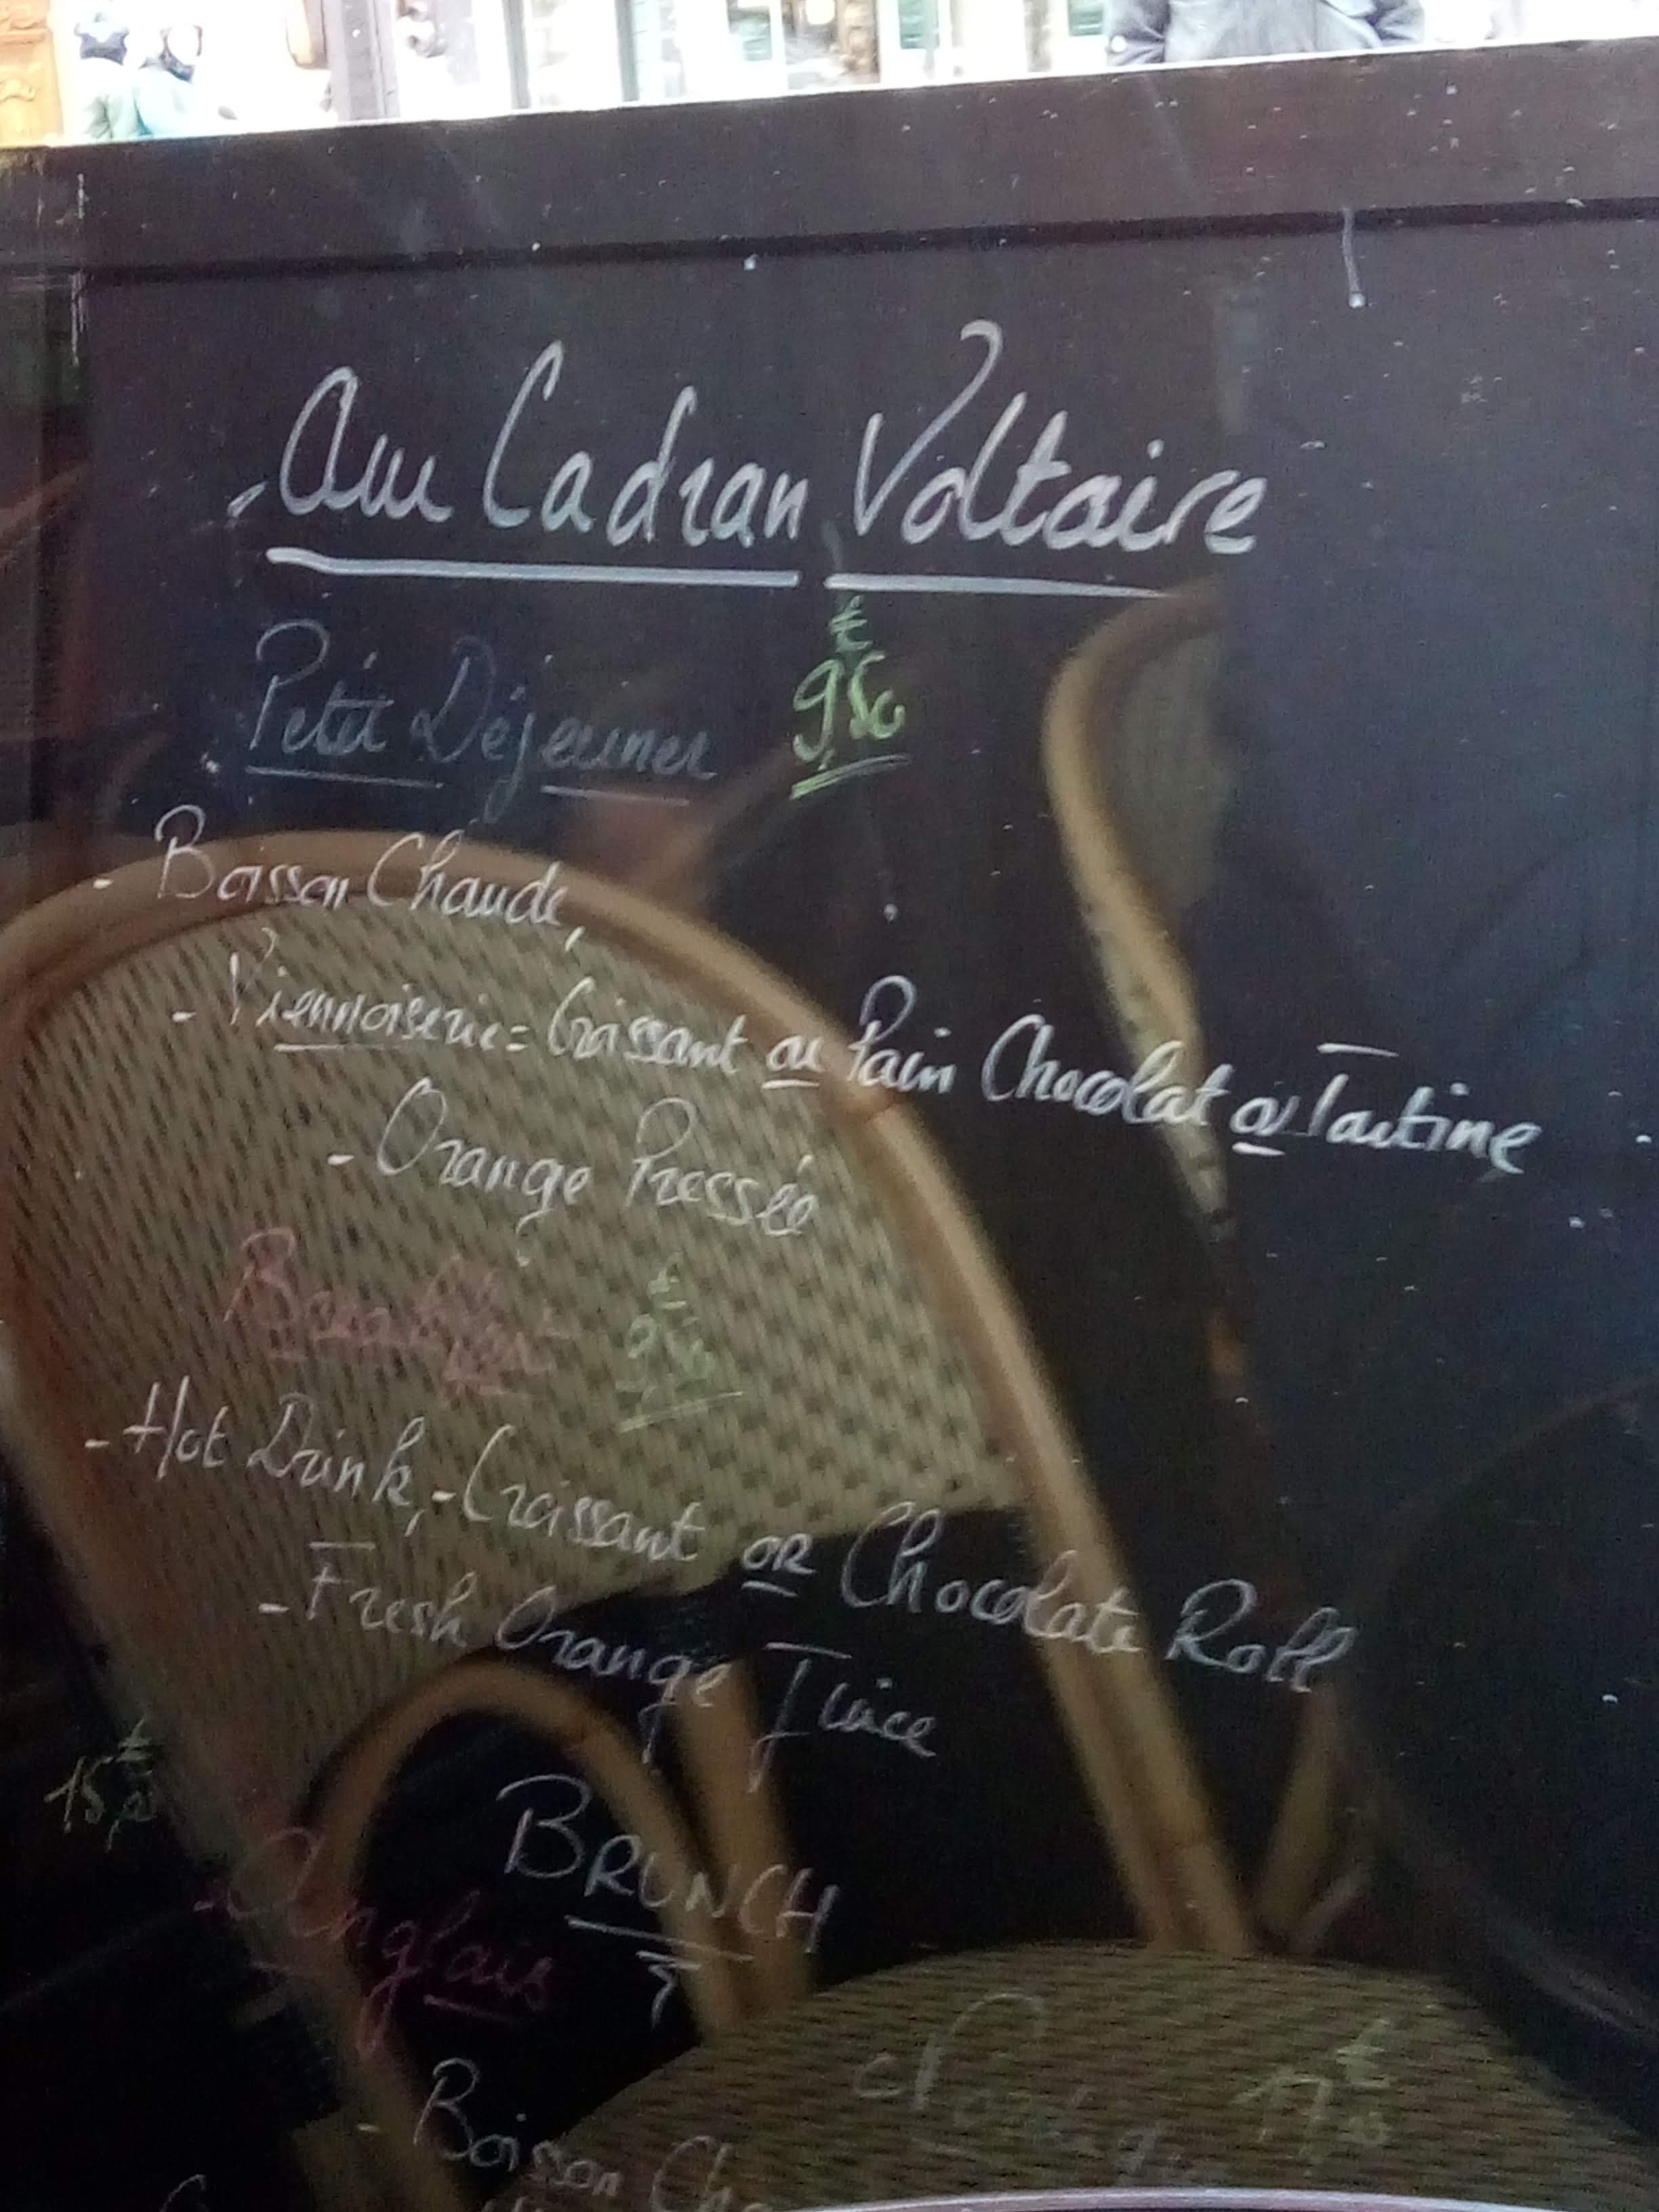 Au Cadran Voltaire
Petit Déjeuner €
9,50
- Boisson Chaude,
- Viennoiserie = Croissant ou Pain Chocolat ou Tartine
- Orange Pressée
Breakfast €
9,50
- Hot Drink, - Croissant OR Chocolate Roll
- Fresh Orange Juice
15,
BRUNCH
Anglais
17,
- Boisson Cha